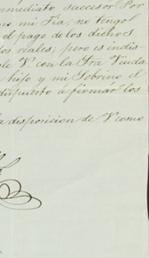 inmediato successor Por
mi Tia; no tengo
el pago de los dichos
los reales; pero es indis
ble V con la Sra Viuda
hijo y mi Sobrino el
dispuesto á firmar los
la disposicion de V como